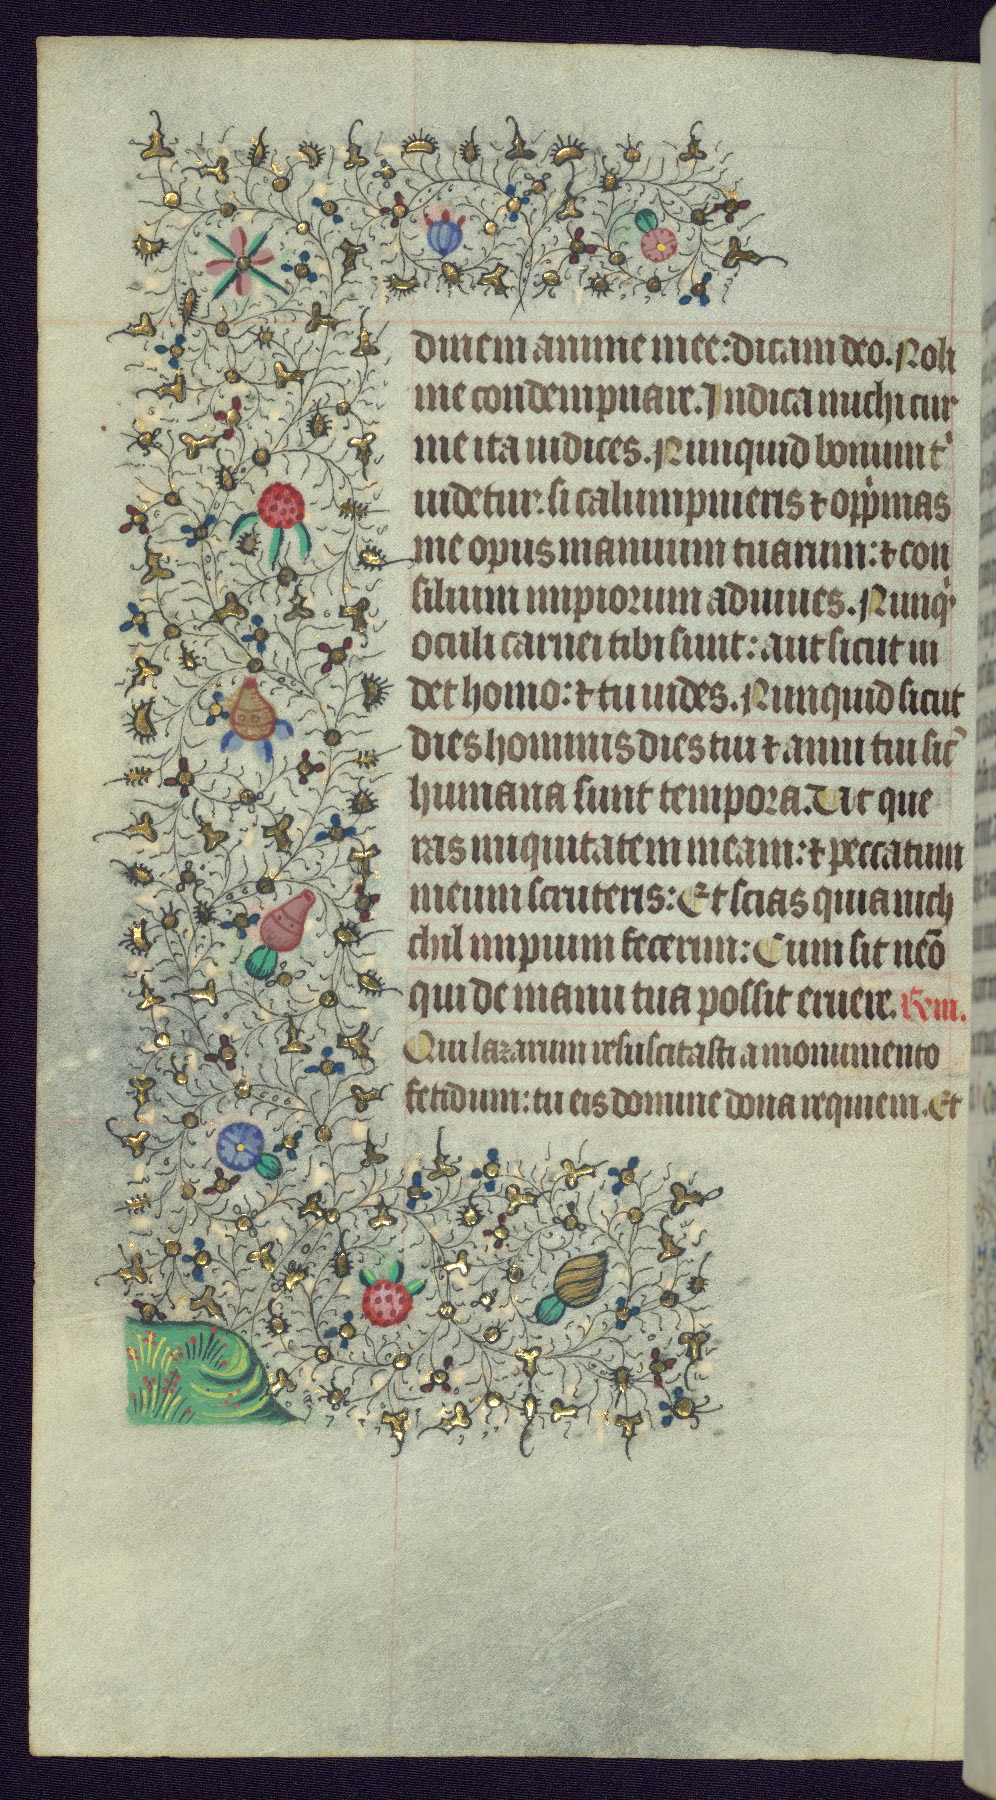 dinem anime mee: dicam deo. Noli
me condempnare. Indica michi cur
me ita iudices. Nunquid bonum t̾
uidetur: si calumpnieris ⁊ opp̾mas
me opus manuum tuarum: ⁊ con
silium impiorum adiuues. Nunq̾
oculi carnei tibi sunt: aut sicut ui
det homo: ⁊ tu uides. Nunquid sicut
dies hominis dies tui ⁊ anni tui sic̄
humana sunt tempora. Ut que
ras iniquitatem meam: ⁊ peccatum
meum scruteris: Et scias quia nich
chil impium fecerim: Cum sit neō
qui de manu tua possit eruere. Rem.
Qui lazarum resuscitasti a monumento
fetidum: tu eis domine dona requiem. Et